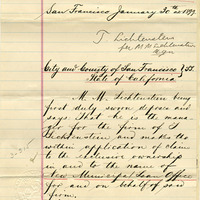 San Francisco January 30th 1897
T Lichtenstein
for M M Lichtenstein
Mgr
City and County of San Francisco } SS.
State of California
M. M. Lichtenstein being
first duly sworn deposes and
says that he is the mana
for the firm of
Lichtenstein and makes the
within application of claim
to the exclusive ownership
in and to the name of
New Municipal Loan Office
for and on behalf of said
firm.